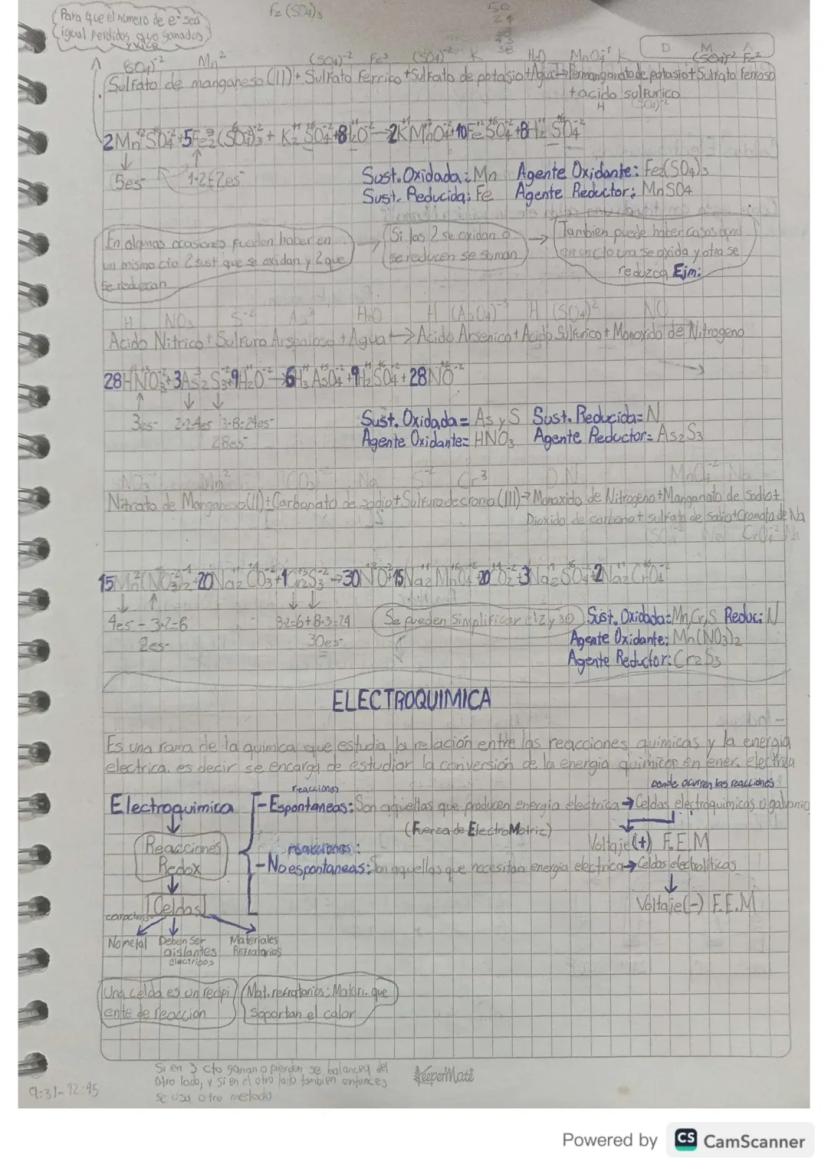 Para que el número de e⁻ sea
igual perdidos que ganados
Fe (SO4)3
50
24
D M A
(SO4)⁻² Mn² (SO4)⁻² Fe³ (SO4)⁻² K H2O MnO4⁻¹ K (SO4)⁻² Fe²
Sulfato de manganeso (II) + Sulfato Ferrico + Sulfato de potasio + Agua → Permanganato de potasio + Sulfato ferroso
+ acido sulfurico
H (SO4)⁻²
2MnSO4 + 5Fe2(SO4)3 + K2SO4 + 8H2O → 2KMnO4 + 10FeSO4 + 8H2SO4
5es⁻ 1·2=2es⁻
Sust. Oxidada: Mn Agente Oxidante: Fe2(SO4)3
Sust. Reducida: Fe Agente Reductor: MnSO4
En algunas ocasiones pueden haber en
un mismo cto 2 sust que se oxidan y 2 que
se reduzcan
Si las 2 se oxidan o
se reducen se suman
Tambien puede haber casos que
en un cto una se oxida y otra se
reduzca Ejm:
H NO3 S⁻² As³ H2O H (AsO4)⁻³ H (SO4)⁻² NO
Acido Nitrico + Sulfuro Arsenioso + Agua → Acido Arsenico + Acido Sulfurico + Monoxido de Nitrogeno
28HNO3 + 3As2S3 + 9H2O → 6H3AsO4 + 9H2SO4 + 28NO
3es⁻ 2·2=4es 3·8=24es⁻
28es⁻
Sust. Oxidada = As y S Sust. Reducida = N
Agente Oxidante = HNO3 Agente Reductor = As2S3
NO3⁻ Mn² (CO3)⁻² Na S⁻² Cr³ MnO4⁻² Na
Nitrato de Manganeso(II) + Carbonato de sodio + Sulfuro de cromo (III) → Monoxido de Nitrogeno + Manganato de sodio +
Dioxido de carbono + sulfato de sodio + Cromato de Na
15Mn(NO3)2 + 20Na2CO3 + 1Cr2S3 → 30NO + 15Na2MnO4 + 20CO2 + 3Na2SO4 + 2Na2CrO4
4es - 3·2=6 3·2=6+8·3=24
2es⁻ 30es⁻
Se pueden simplificar el 2 y 30
Sust. Oxidada: Mn, Cr, S Reduc: N
Agente Oxidante: Mn(NO3)2
Agente Reductor: Cr2S3
ELECTROQUIMICA
Es una rama de la quimica que estudia la relación entre las reacciones quimicas y la energia
electrica. es decir se encarga de estudiar la conversión de la energia quimica en ener. electrica
reacciones
Donde ocurren las reacciones
Electroquimica - Espontaneas: Son aquellas que producen energia electrica → Celdas electroquimicas o galvanic
(Fuerza de ElectroMotriz)
Voltaje(+) F.E.M
Reacciones
Redox
reacciones:
- No espontaneas: Son aquellas que necesitan energia electrica → Celdas electroliticas
Voltaje(-) F.E.M
Celdas
caracteris
No metal Deben ser Materiales
aislantes Refratarios
electricos
Una celda es un recipi
ente de reacción
Mat. refratarios: Materi. que
soportan el calor
Si en 1 cto ganan o pierden se balancea del
otro lado, y si en el otro lado tambien entonces
se usa otro metodo
9:31-12:45
Powered by CS CamScanner